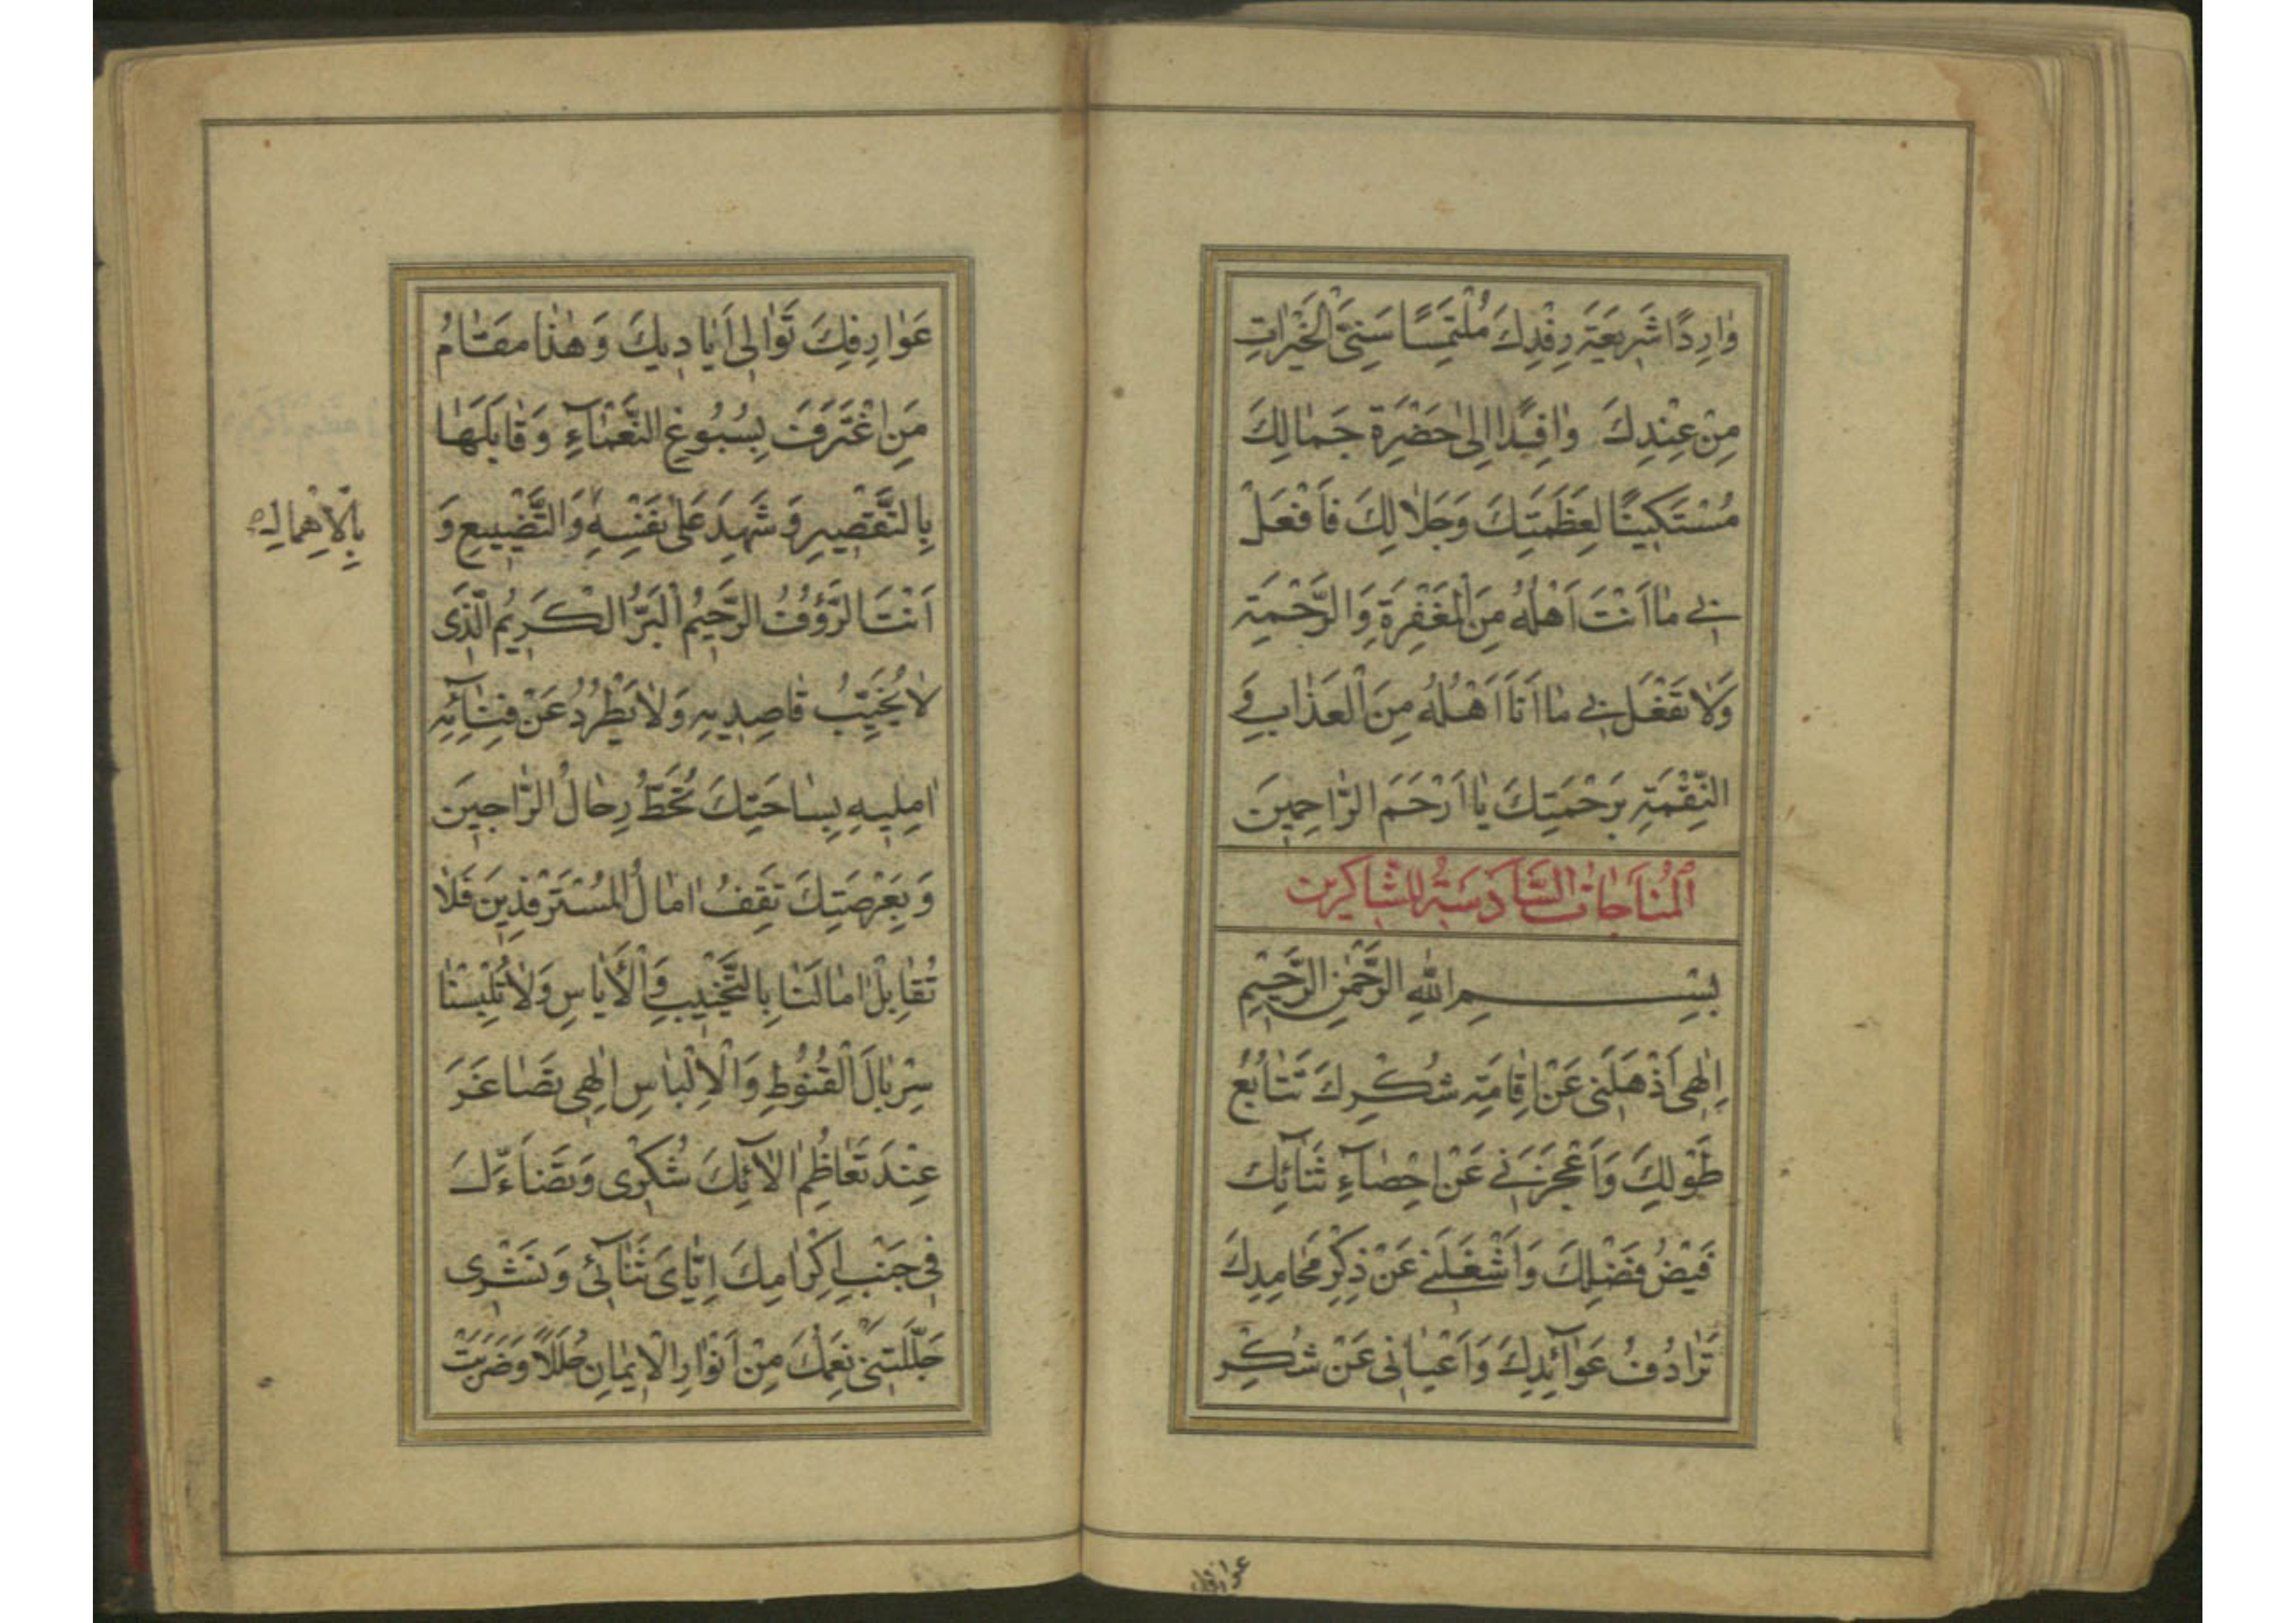 وٰارِدًا شَرٖيعَةَ رِفْدِكَ مُلْتَمِسًا سَنِىَّ الْخَيْرٰاتِ
مِنْ عِنْدِكَ وٰافِدًا اِلىٰ حَضْرَةِ جَمٰالِكَ
مُسْتَكٖينًا لِعَظَمَتِكَ وَجَلٰالِكَ فَافْعَلْ
بٖى مٰا اَنْتَ اَهْلُهُ مِنَ الْمَغْفِرَةِ وَالرَّحْمَةِ
وَلٰا تَفْعَلْ بٖى مٰا اَنَا اَهْلُهُ مِنَ الْعَذٰابِ وَ
النِّقْمَةِ بِرَحْمَتِكَ يٰا اَرْحَمَ الرّٰاحِمٖينَ
اَلْمُنٰاجٰاتُ السّٰادِسَةُ لِلشّٰاكِرٖينَ
بِسْمِ اللّٰهِ الرَّحْمٰنِ الرَّحٖيمِ
اِلٰهٖى اَذْهَلَنٖى عَنْ اِقٰامَةِ شُكْرِكَ تَتٰابُعُ
طَوْلِكَ وَاَعْجَزَنٖى عَنْ اِحْصٰاۤءِ ثَنٰاۤئِكَ
فَيْضُ فَضْلِكَ وَاَشْغَلَنٖى عَنْ ذِكْرِ مَحٰامِدِكَ
تَرٰادُفُ عَوٰاۤئِدِكَ وَاَعْيٰانٖى عَنْ شُكْرِ
عوارفك
عَوٰارِفِكَ تَوٰالٖى اَيٰادٖيكَ وَهٰذٰا مَقٰامُ
مَنِ اعْتَرَفَ بِسُبُوغِ النَّعْمٰاۤءِ وَقٰابَلَهٰا
بِالتَّقْصٖيرِ وَشَهِدَ عَلىٰ نَفْسِهٖ وَالتَّضْيٖيعِ وَ
بِالْاِهْمٰالِ
اَنْتَ الرَّؤُفُ الرَّحٖيمُ الْبَرُّ الْكَرٖيمُ الَّذٖى
لٰا يُخَيِّبُ قٰاصِدٖيهِ وَلٰا يَطْرُدُ عَنْ فِنٰاۤئِهٖ
اٰمِلٖيهِ بِسٰاحَتِكَ تُحَطُّ رِحٰالُ الرّٰاجٖينَ
وَبِعَرْصَتِكَ تَقِفُ اٰمٰالُ الْمُسْتَرْفِدٖينَ فَلٰا
تُقٰابِلْ اٰمٰالَنٰا بِالتَّخْيٖيبِ وَالْاَيٰاسِ وَلٰا تُلْبِسْنٰا
سِرْبٰالَ الْقُنُوطِ وَالْاِلْبٰاسِ اِلٰهٖى تَصٰاغَرَ
عِنْدَ تَعٰاظُمِ اٰلٰاۤئِكَ شُكْرٖى وَتَضٰاۤءَلَ
فٖى جَنْبِ اِكْرٰامِكَ اِيّٰاىَ ثَنٰاۤئٖى وَنَشْرٖى
جَلَّلَتْنٖى نِعَمُكَ مِنْ اَنْوٰارِ الْاٖيمٰانِ حُلَلًا وَضَرَبَتْ